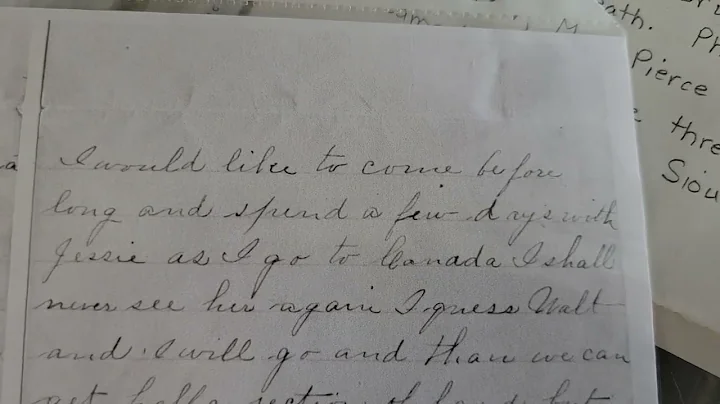 ath. Ph
Pierce
thre
Siou
I would like to come before
long and spend a few days with
Jessie as I go to Canada I shall
never see her again I guess Walt
and I will go and than we can
get halfe section of land but